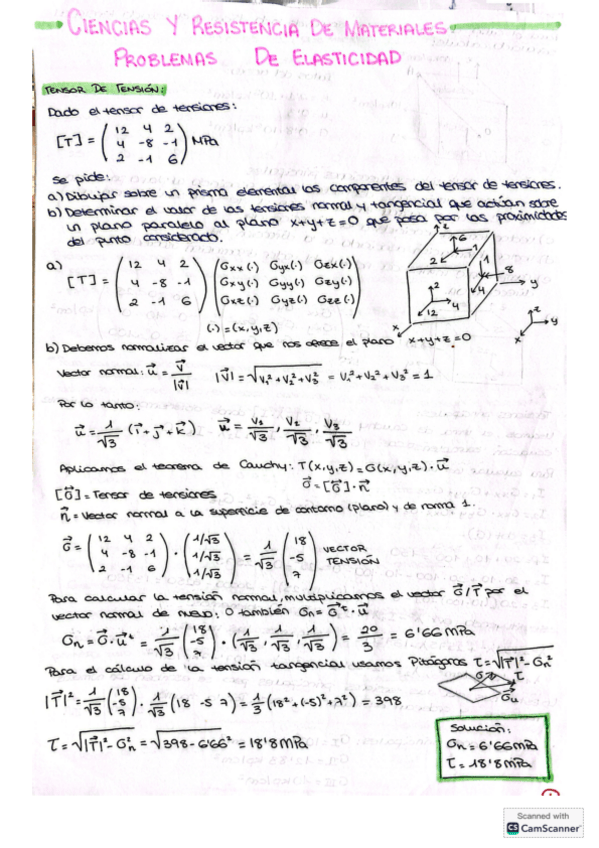 CIENCIAS Y RESISTENCIA DE MATERIALES
PROBLEMAS DE ELASTICIDAD
TENSOR DE TENSIÓN:
Dado el tensor de tensiones:
[T] = ( 12 4 2 / 4 -8 -1 / 2 -1 6 ) MPa
se pide:
a) Dibujar sobre un prisma elemental las componentes del tensor de tensiones.
b) Determinar el valor de las tensiones normal y tangencial que actúan sobre
un plano paralelo al plano x+y+z=0 que pasa por las proximidades
del punto considerado.
a)
[T] = ( 12 4 2 / 4 -8 -1 / 2 -1 6 ) ( σxx(·) σyx(·) σzx(·) / σxy(·) σyy(·) σzy(·) / σxz(·) σyz(·) σzz(·) )
(·) = (x,y,z)
z 6 2 1 1 8 4 y 2 4 12 x
z y x
b) Debemos normalizar el vector que nos ofrece el plano x+y+z=0
Vector normal: u⃗ = V⃗/|V⃗| |V⃗| = √(V₁²+V₂²+V₃²) = V₁²+V₂²+V₃² = 1
Por lo tanto:
u⃗ = 1/√3 (i⃗+j⃗+k⃗) u⃗ = V₁/√3, V₂/√3, V₃/√3
Aplicamos el teorema de Cauchy: T(x,y,z) = σ(x,y,z)·u⃗
σ⃗ = [σ⃗]·n⃗
[σ⃗] = Tensor de tensiones
n⃗ = Vector normal a la superficie de contorno (plano) y de norma 1.
σ⃗ = ( 12 4 2 / 4 -8 -1 / 2 -1 6 ) · ( 1/√3 / 1/√3 / 1/√3 ) = 1/√3 ( 18 / -5 / 7 ) VECTOR TENSIÓN
Para calcular la tensión normal, multiplicamos el vector σ⃗/T⃗ por el
vector normal de nuevo; o también σn = σ⃗ᵗ·u⃗
σn = σ⃗·u⃗ᵗ = 1/√3 ( 18 / -5 / 7 ) · ( 1/√3, 1/√3, 1/√3 ) = 20/3 = 6'66 MPa
Para el cálculo de la tensión tangencial usamos Pitágoras τ = √(|T⃗|²-σn²)
|T⃗|² = 1/√3 ( 18 / -5 / 7 ) · 1/√3 (18 -5 7) = 1/3 (18²+(-5)²+7²) = 398
τ = √(|T⃗|²-σn²) = √(398-6'66²) = 18'8 MPa
Solución:
σn = 6'66 MPa
τ = 18'8 MPa
Scanned with
CS CamScanner